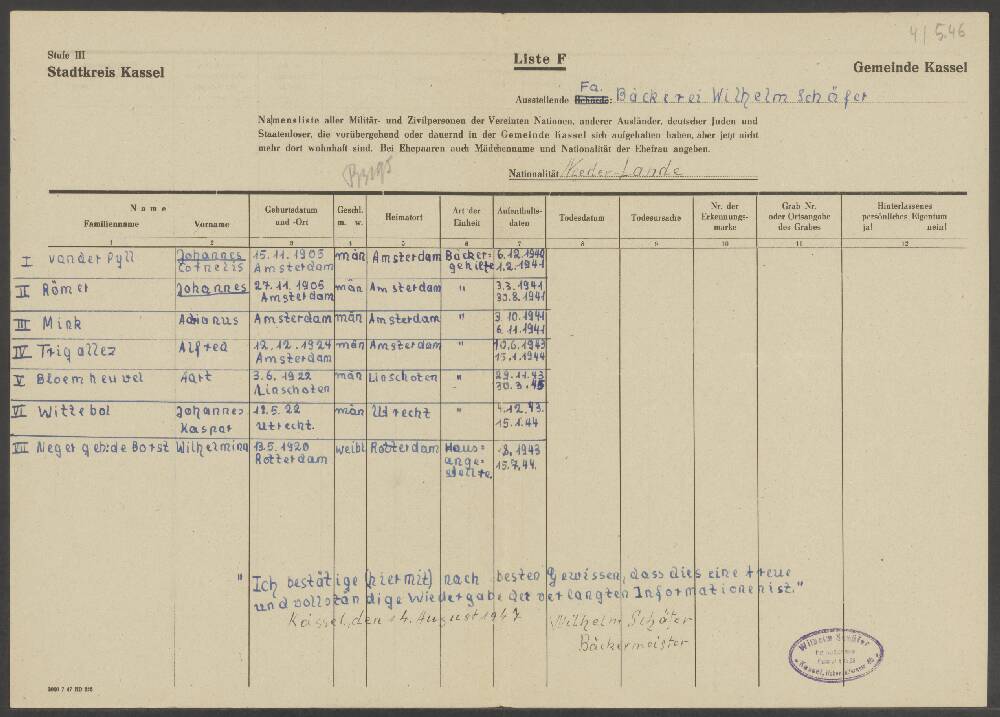 4/5.46
Stufe III
Stadtkreis Kassel
Liste F
Gemeinde Kassel
Fa.
Ausstellende Behörde: Bäckerei Wilhelm Schäfer
Namensliste aller Militär- und Zivilpersonen der Vereinten Nationen, anderer Ausländer, deutscher Juden und
Staatenloser, die vorübergehend oder dauernd in der Gemeinde Kassel sich aufgehalten haben, aber jetzt nicht
mehr dort wohnhaft sind. Bei Ehepaaren auch Mädchenname und Nationalität der Ehefrau angeben.
Nationalität Nieder-Lande
Name
Familienname Vorname
Geburtsdatum und -Ort
Geschl. m. w.
Heimatort
Art der Einheit
Aufenthaltsdaten
Todesdatum
Todesursache
Nr. der Erkennungsmarke
Grab Nr. oder Ortsangabe des Grabes
Hinterlassenes persönliches Eigentum ja! nein!
1 2 3 4 5 6 7 8 9 10 11 12
I van der Pyll Johannes 15.11.1905 män Amsterdam Bäcker= 6.12.1940
Cornelis Amsterdam gehilfe 1.2.1941
II Römer Johannes 27.11.1905 män Amsterdam " 3.3.1941
Amsterdam 30.8.1941
III Mink Adrianus Amsterdam män Amsterdam " 3.10.1941
6.11.1941
IV Trigallez Alfred 12.12.1924 män Amsterdam " 10.6.1943
Amsterdam 15.1.1944
V Bloemheuvel Aart 3.6.1922 män Linschoten " 29.11.43
Linschoten 30.3.45
VI Wittebol Johannes 12.5.22 män Utrecht " 4.12.43.
Kaspar Utrecht. 15.1.44
VII Neger geb:de Borst Wilhelmina 13.5.1920 weibl Rotterdam Haus= .8.1943
Rotterdam ange= 15.7.44.
stellte.
" Ich bestätige (hiermit) nach besten Gewissen, dass dies eine treue
und vollständige Wiedergabe der verlangten Informationen ist."
Kassel, den 14. August 1947 Wilhelm Schäfer
Bäckermeister
Wilhelm Schäfer
Kassel,
3000 7 47 HD